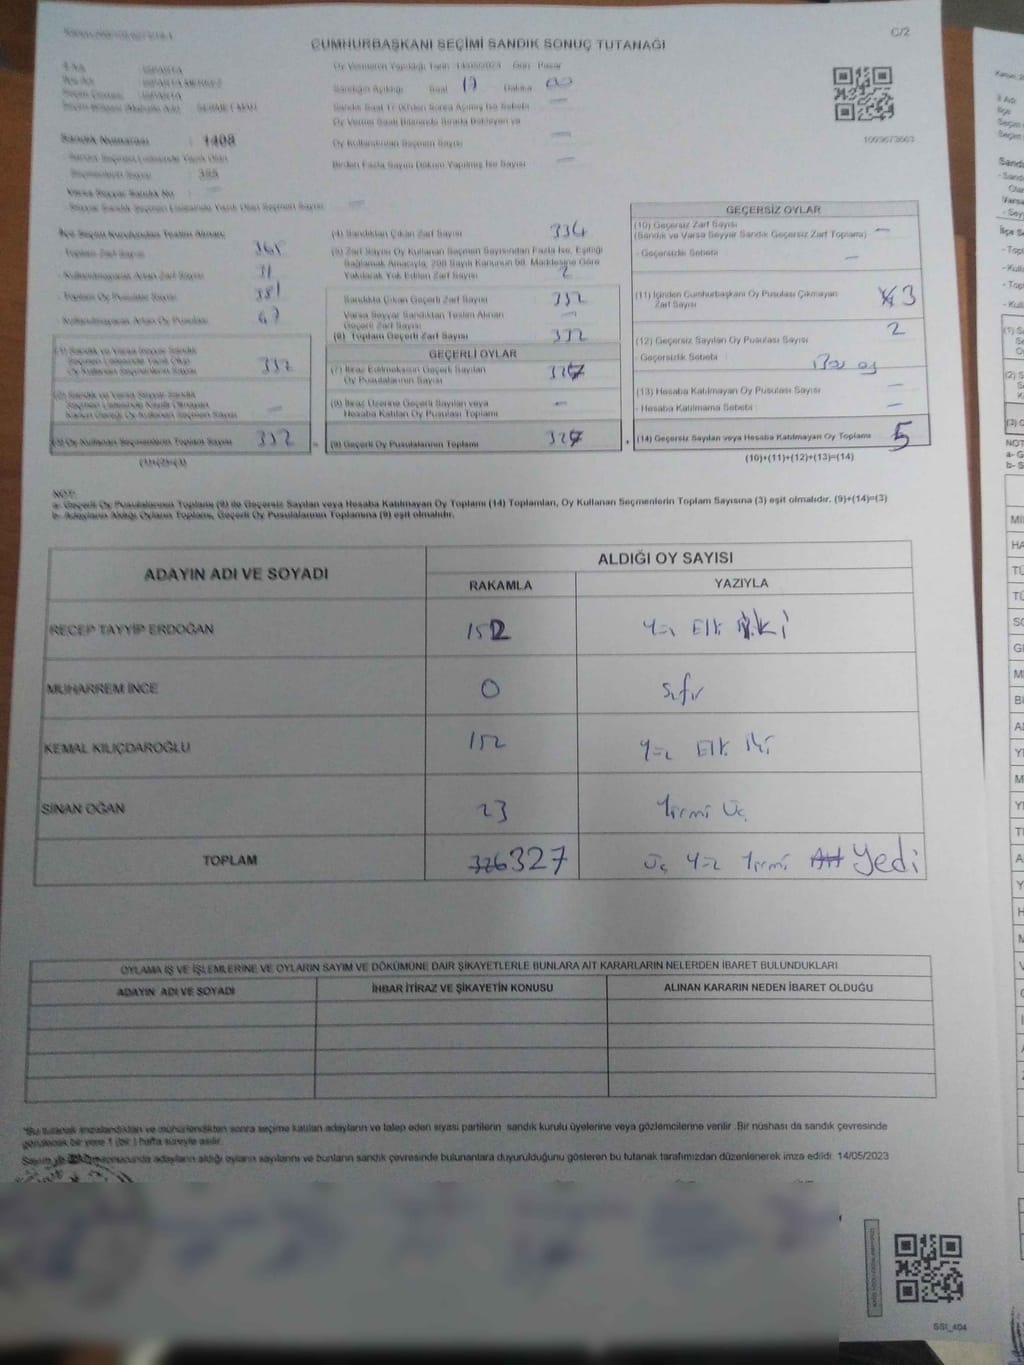 C/2
CUMHURBAŞKANI SEÇİMİ SANDIK SONUÇ TUTANAĞI
Oy Vermenin Yapıldığı Tarih 14/05/2023 Gün Pazar
İl Adı : ISPARTA
İlçe Adı : ISPARTA MERKEZ
Seçim Çevresi : ISPARTA
Sandığın Açıldığı Saat 17 Dakika 00
Sandık Saat 17.00'den Sonra Açılmış İse Sebebi —
Oy Verme Saati Bitiminde Sırada Bekleyen ve
Oy Kullandırılan Seçmen Sayısı —
Birden Fazla Sayım Döküm Yapılmış İse Sayısı —
1093673663
Sandık Numarası : 1408
- Sandık Seçmen Listesinde Yazılı Olan
Seçmenlerin Sayısı : 385
Varsa Seyyar Sandık No —
- Seyyar Sandık Seçmen Listesinde Yazılı Olan Seçmen Sayısı —
İlçe Seçim Kurulundan Teslim Alınan
- Toplam Zarf Sayısı 365
- Kullanılmayarak Artan Zarf Sayısı 31
- Toplam Oy Pusulası Sayısı 381
- Kullanılmayarak Artan Oy Pusulası
(1) Sandık ve Varsa Seyyar Sandık
Seçmen Listesinde Yazılı Olup
Oy Kullanan Seçmenlerin Sayısı 332
(2) Sandık ve Varsa Seyyar Sandık
Seçmen Listesinde Kayıtlı Olmayan
Kanun Gereği Oy Kullanan Seçmenlerin Sayısı —
(3) Oy Kullanan Seçmenlerin Toplam Sayısı 332
(1)+(2)=(3)
(4) Sandıktan Çıkan Zarf Sayısı 334
(5) Zarf Sayısı Oy Kullanan Seçmen Sayısından Fazla İse, Eşitliği
Sağlamak Amacıyla, 298 Sayılı Kanunun 98. Maddesine Göre
Yakılarak Yok Edilen Zarf Sayısı 2
Sandıkta Çıkan Geçerli Zarf Sayısı 332
Varsa Seyyar Sandıktan Teslim Alınan
Geçerli Zarf Sayısı —
(6) Toplam Geçerli Zarf Sayısı 332
GEÇERLİ OYLAR
(7) İtiraz Edilmeksizin Geçerli Sayılan
Oy Pusulalarının Sayısı 327
(8) İtiraz Üzerine Geçerli Sayılan veya
Hesaba Katılan Oy Pusulası Toplamı —
(9) Geçerli Oy Pusulalarının Toplamı 327
GEÇERSİZ OYLAR
(10) Geçersiz Zarf Sayısı —
(Sandık ve Varsa Seyyar Sandık Geçersiz Zarf Toplamı)
- Geçersizlik Sebebi —
(11) İçinden Cumhurbaşkanı Oy Pusulası Çıkmayan
Zarf Sayısı 3
(12) Geçersiz Sayılan Oy Pusulası Sayısı 2
- Geçersizlik Sebebi : Boş oy
(13) Hesaba Katılmayan Oy Pusulası Sayısı —
- Hesaba Katılmama Sebebi —
(14) Geçersiz Sayılan veya Hesaba Katılmayan Oy Toplamı 5
(10)+(11)+(12)+(13)=(14)
NOT:
a- Geçerli Oy Pusulalarının Toplamı (9) ile Geçersiz Sayılan veya Hesaba Katılmayan Oy Toplamı (14) Toplamları, Oy Kullanan Seçmenlerin Toplam Sayısına (3) eşit olmalıdır. (9)+(14)=(3)
b- Adayların Aldığı Oyların Toplamı, Geçerli Oy Pusulalarının Toplamına (9) eşit olmalıdır.
ADAYIN ADI VE SOYADI
ALDIĞI OY SAYISI
RAKAMLA YAZIYLA
RECEP TAYYİP ERDOĞAN 152 Yüz Elli İki
MUHARREM İNCE 0 Sıfır
KEMAL KILIÇDAROĞLU 152 Yüz Elli iki
SİNAN OĞAN 23 Yirmi Üç
TOPLAM 326 327 Üç Yüz Yirmi Altı Yedi
OYLAMA İŞ VE İŞLEMLERİNE VE OYLARIN SAYIM VE DÖKÜMÜNE DAİR ŞİKAYETLERLE BUNLARA AİT KARARLARIN NELERDEN İBARET BULUNDUKLARI
ADAYIN ADI VE SOYADI İHBAR İTİRAZ VE ŞİKAYETİN KONUSU ALINAN KARARIN NEDEN İBARET OLDUĞU
*Bu tutanak imzalandıktan ve mühürlendikten sonra seçime katılan adayların ve talep eden siyasi partilerin sandık kurulu üyelerine veya gözlemcilerine verilir. Bir nüshası da sandık çevresinde
görülecek bir yere 1 (bir ) hafta süreyle asılır.
sonucunda adayların aldığı oyların sayılarını ve bunların sandık çevresinde bulunanlara duyurulduğunu gösteren bu tutanak tarafımızdan düzenlenerek imza edildi. 14/05/2023
SSI_404